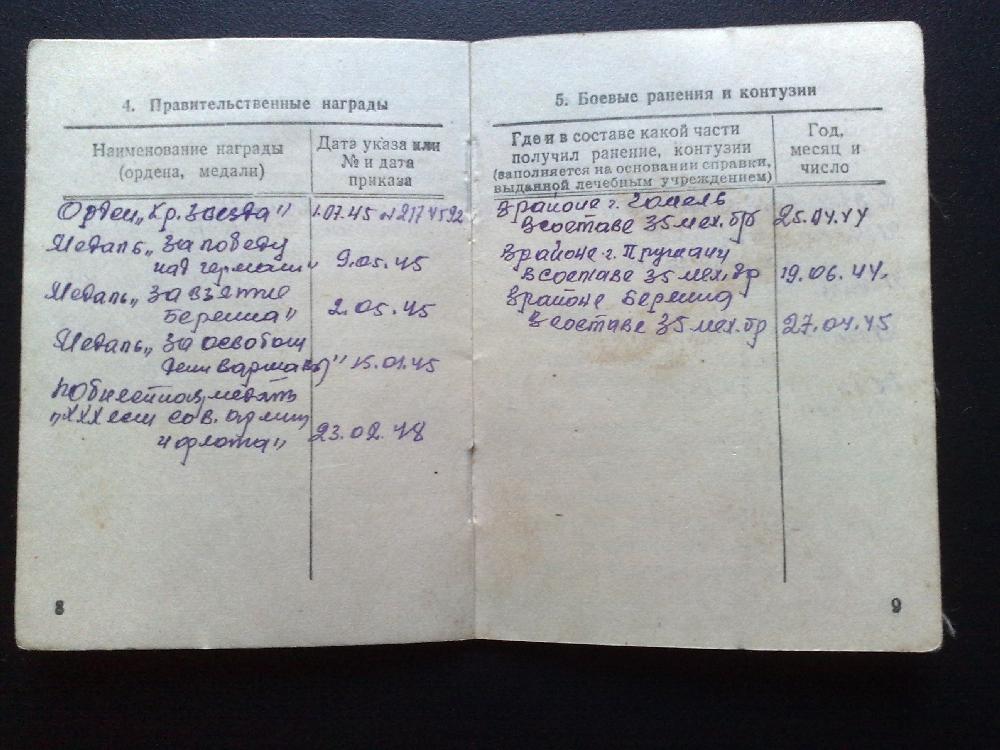 4. Правительственные награды
Наименование награды
(ордена, медали)
Дата указа или
№ и дата
приказа
Орден „Кр. Звезда"
1.07.45 №2174592
Медаль „За победу
над германи"
9.05.45
Медаль „За взятие
Берлина"
2.05.45
Медаль „За освобож
дени Варшавы)"
15.01.45
Юбилейной медаль
„XXX лет сов. армии
и флота"
23.02.48
8
5. Боевые ранения и контузии
Где и в составе какой части
получил ранение, контузии
(заполняется на основании справки,
выданной лечебным учреждением)
Год,
месяц и
число
В районе г. Гомель
В составе 35 мех. бр
25.04.44
В районе г. Пружаны
В составе 35 мех. бр
19.06.44.
В районе Берлина
В составе 35 мех. бр
27.04.45
9